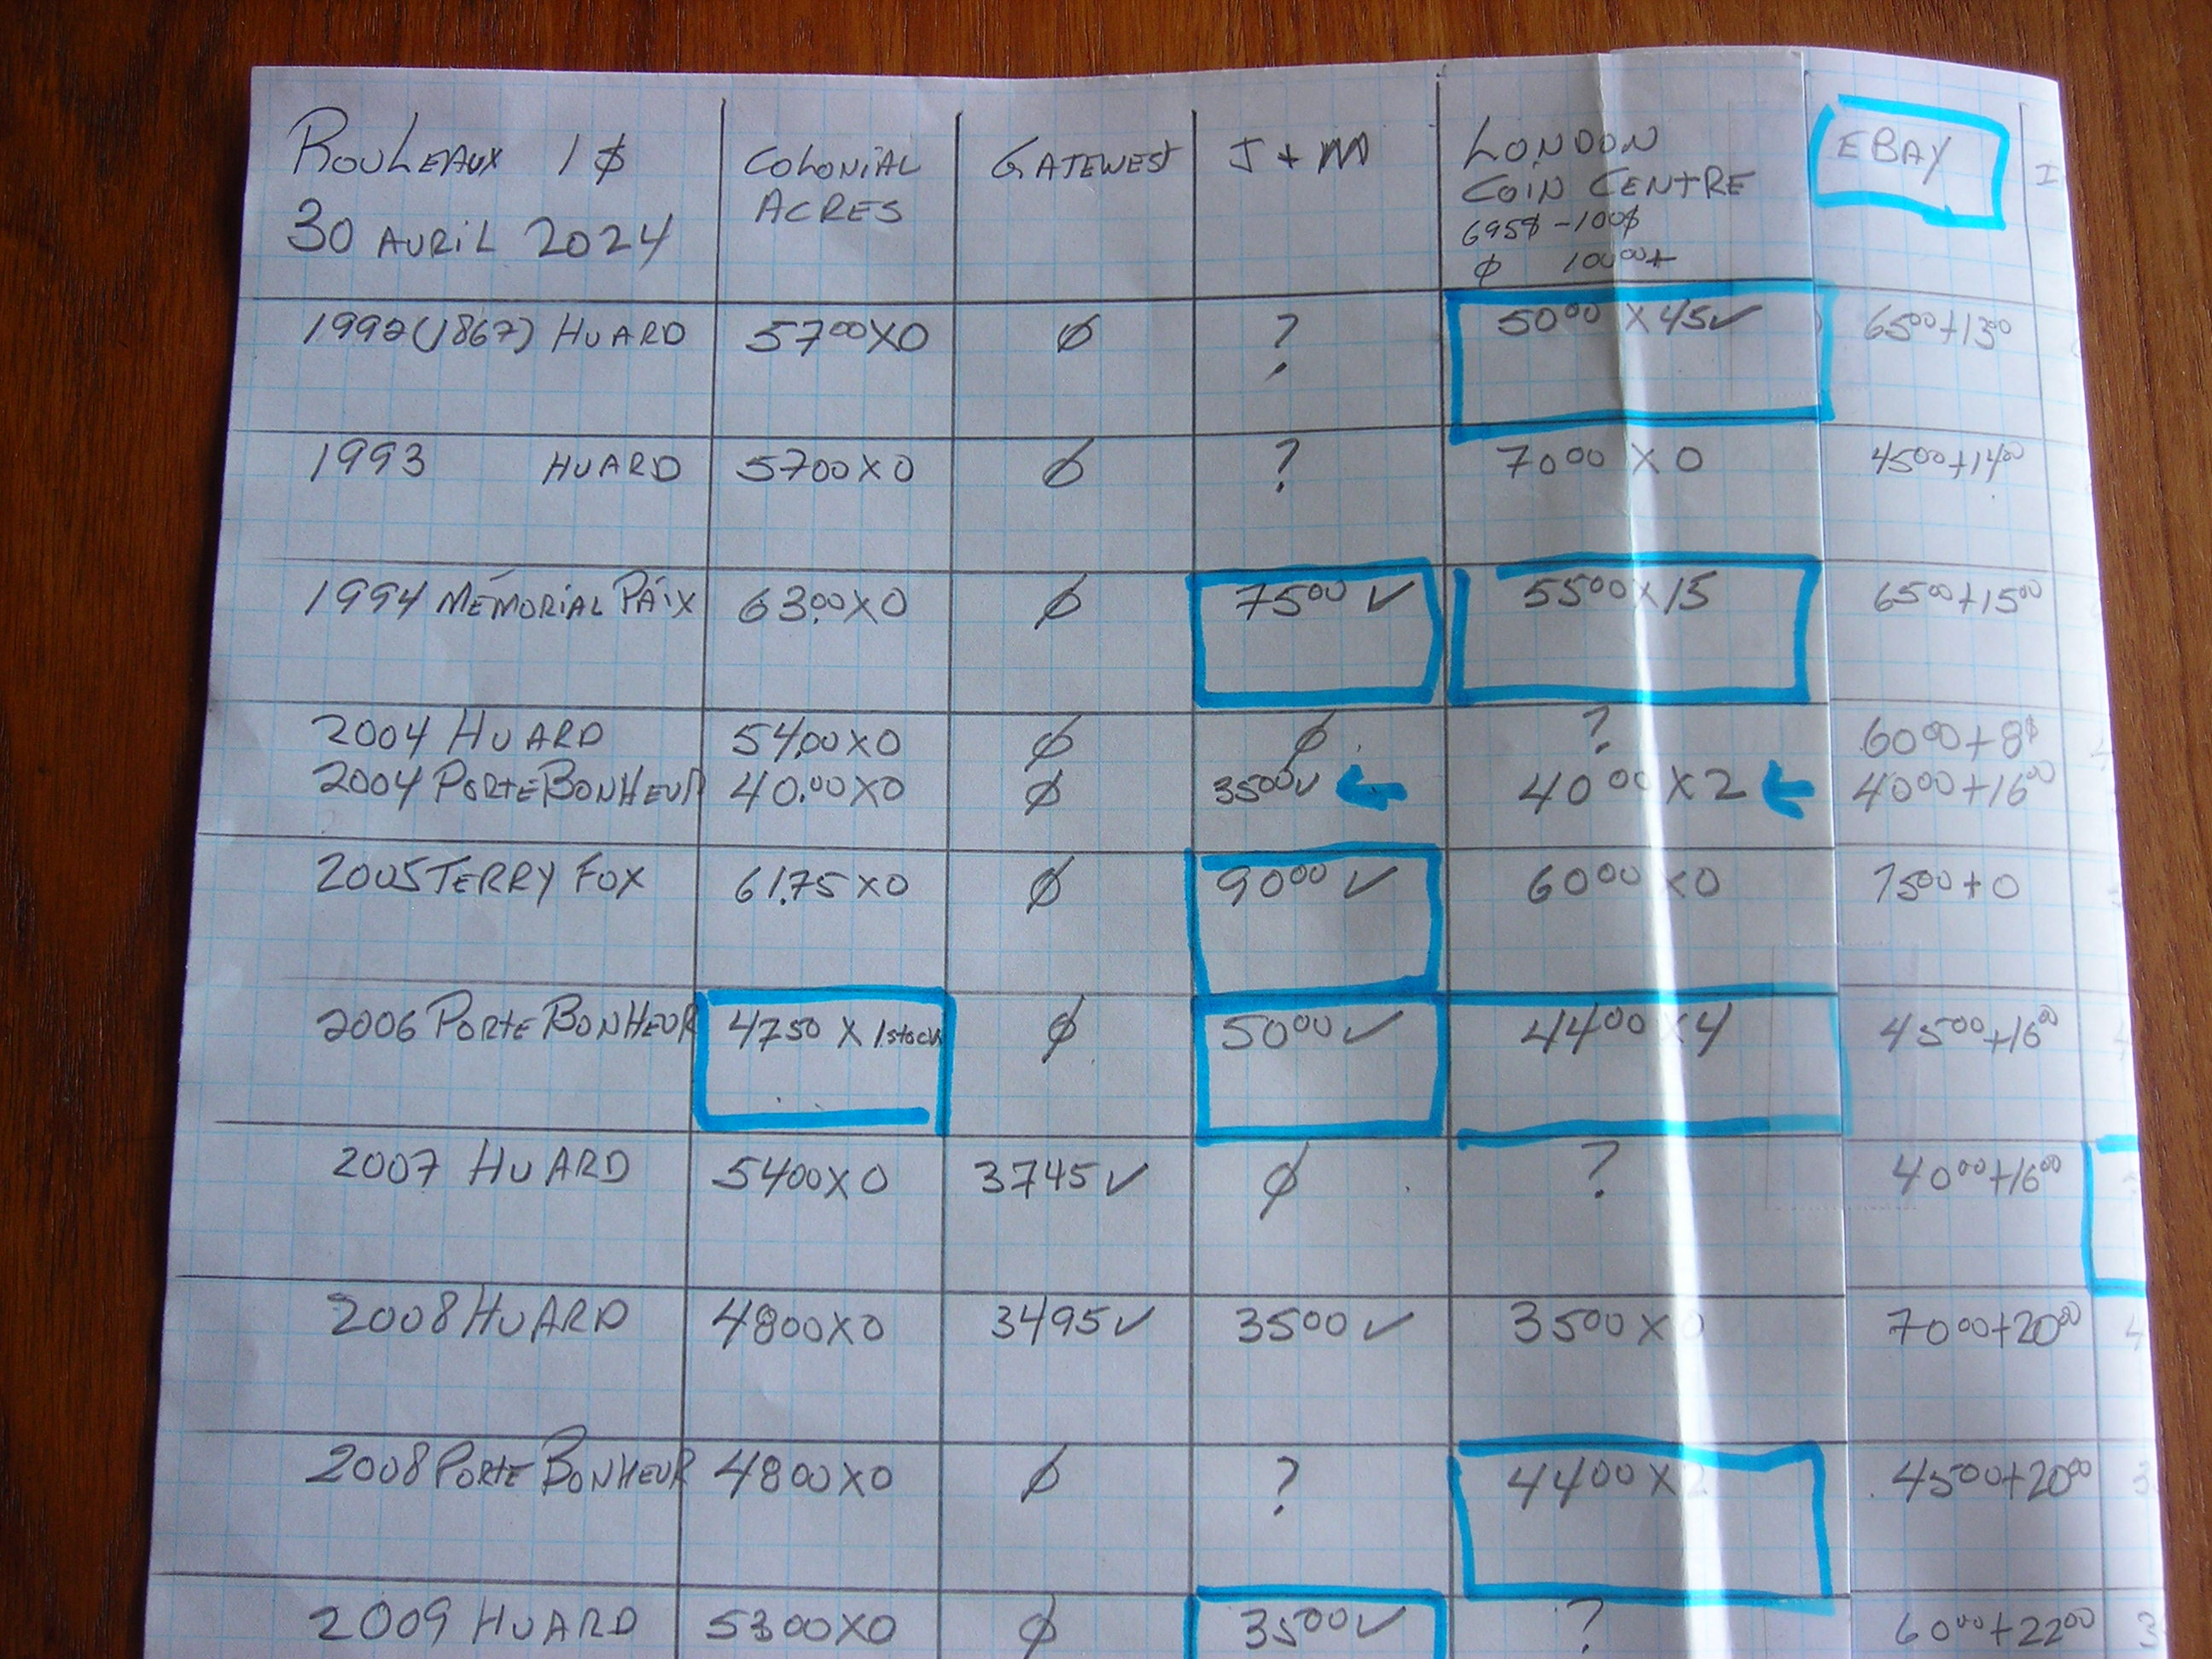 ROULEAUX 1$ COLONIAL ACRES GATEWEST J + M LONDON COIN CENTRE EBAY
30 AVRIL 2024 695$ - 100$
ϕ 1000+
1992 (1867) HUARD 5700 X 0 ϕ ? 5000 X 45 ✓ 6500 + 1300
1993 HUARD 5700 X 0 ϕ ? 7000 X 0 4500 + 1400
1994 MÉMORIAL PAIX 63.00 X 0 ϕ 7500 ✓ 5500 X 15 6500 + 1500
2004 HUARD 54.00 X 0 ϕ ϕ ? 6000 + 8$
2004 PORTE BONHEUR 40.00 X 0 ϕ 3500 ✓ ← 4000 X 2 ← 4000 + 1600
2005 TERRY FOX 61.75 X 0 ϕ 9000 ✓ 6000 X 0 7500 + 0
2006 PORTE BONHEUR 4750 X 1 stock ϕ 5000 ✓ 4400 X 4 4500 + 1600
2007 HUARD 5400 X 0 3745 ✓ ϕ ? 4000 + 1600
2008 HUARD 4800 X 0 3495 ✓ 3500 ✓ 3500 X 0 7000 + 2000
2008 PORTE BONHEUR 4800 X 0 ϕ ? 4400 X 2 4500 + 2000
2009 HUARD 5300 X 0 ϕ 3500 ✓ ? 6000 + 2200